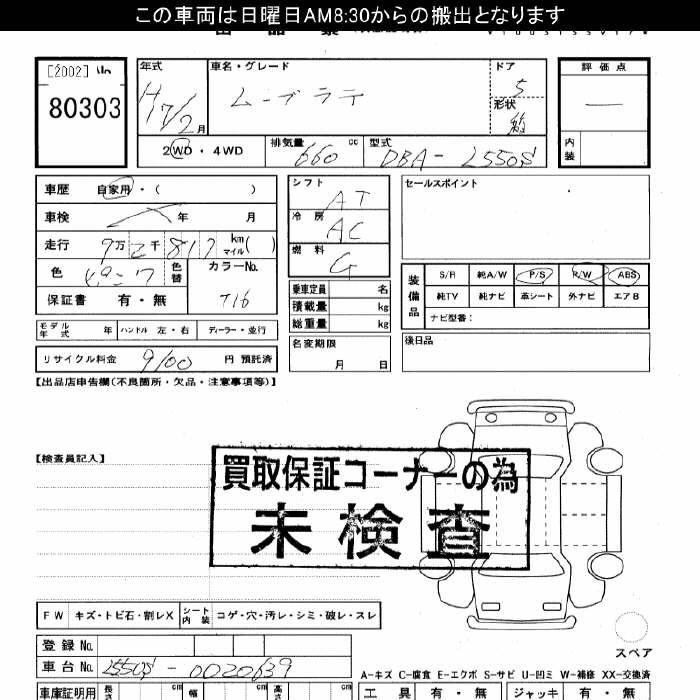 この車両は日曜日AM8:30からの搬出となります
[2002] 山
80303
年式
H17/2月
車名・グレード
ムーブラテ
ドア
5
形状
箱
評価点
—
内装
2WD・4WD
排気量
660 cc
型式
DBA-L550S
車歴 自家用・( )
車検 年 月
走行 9万2千817 km マイル( )
色 ピンク 色替
カラーNo.
T16
保証書 有・無
シフト
AT
冷房
AC
燃料
G
乗車定員 名
積載量 kg
総重量 kg
名変期限
月 日
セールスポイント
装備品
S/R 純A/W P/S R/W ABS
純TV 純ナビ 革シート 外ナビ エアB
ナビ型番:
後日品
モデル年式 年 ハンドル 左・右 ディーラー・並行
リサイクル料金 9100 円 預託済
【出品店申告欄(不良箇所・欠品・注意事項等)】
【検査員記入】
買取保証コーナーの為
未検査
FW キズ・トビ石・割レX シート内装 コゲ・穴・汚レ・シミ・破レ・スレ
スペア
登録 No.
車台 No. L550S-0020639
A-キズ C-腐食 E-エクボ S-サビ U-凹ミ W-補修 XX-交換済
車庫証明用 長さ cm 幅 cm 高さ cm
工具 有・無 ジャッキ 有・無